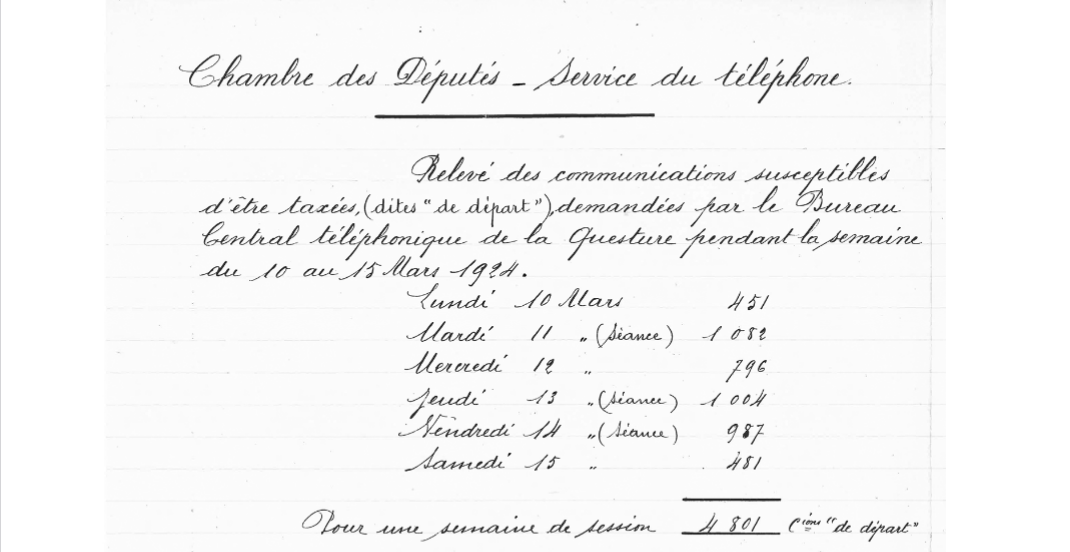 Chambre des Députés - Service du téléphone.
Relevé des communications susceptibles
d'être taxées, (dites "de départ"), demandées par le Bureau
Central téléphonique de la Questure pendant la semaine
du 10 au 15 Mars 1924.
Lundi 10 Mars 451
Mardi 11 " (Séance) 1 082
Mercredi 12 " 796
Jeudi 13 " (Séance) 1 004
Vendredi 14 " (Séance) 987
Samedi 15 " 481
Pour une semaine de session 4 801 C^ions "de départ"